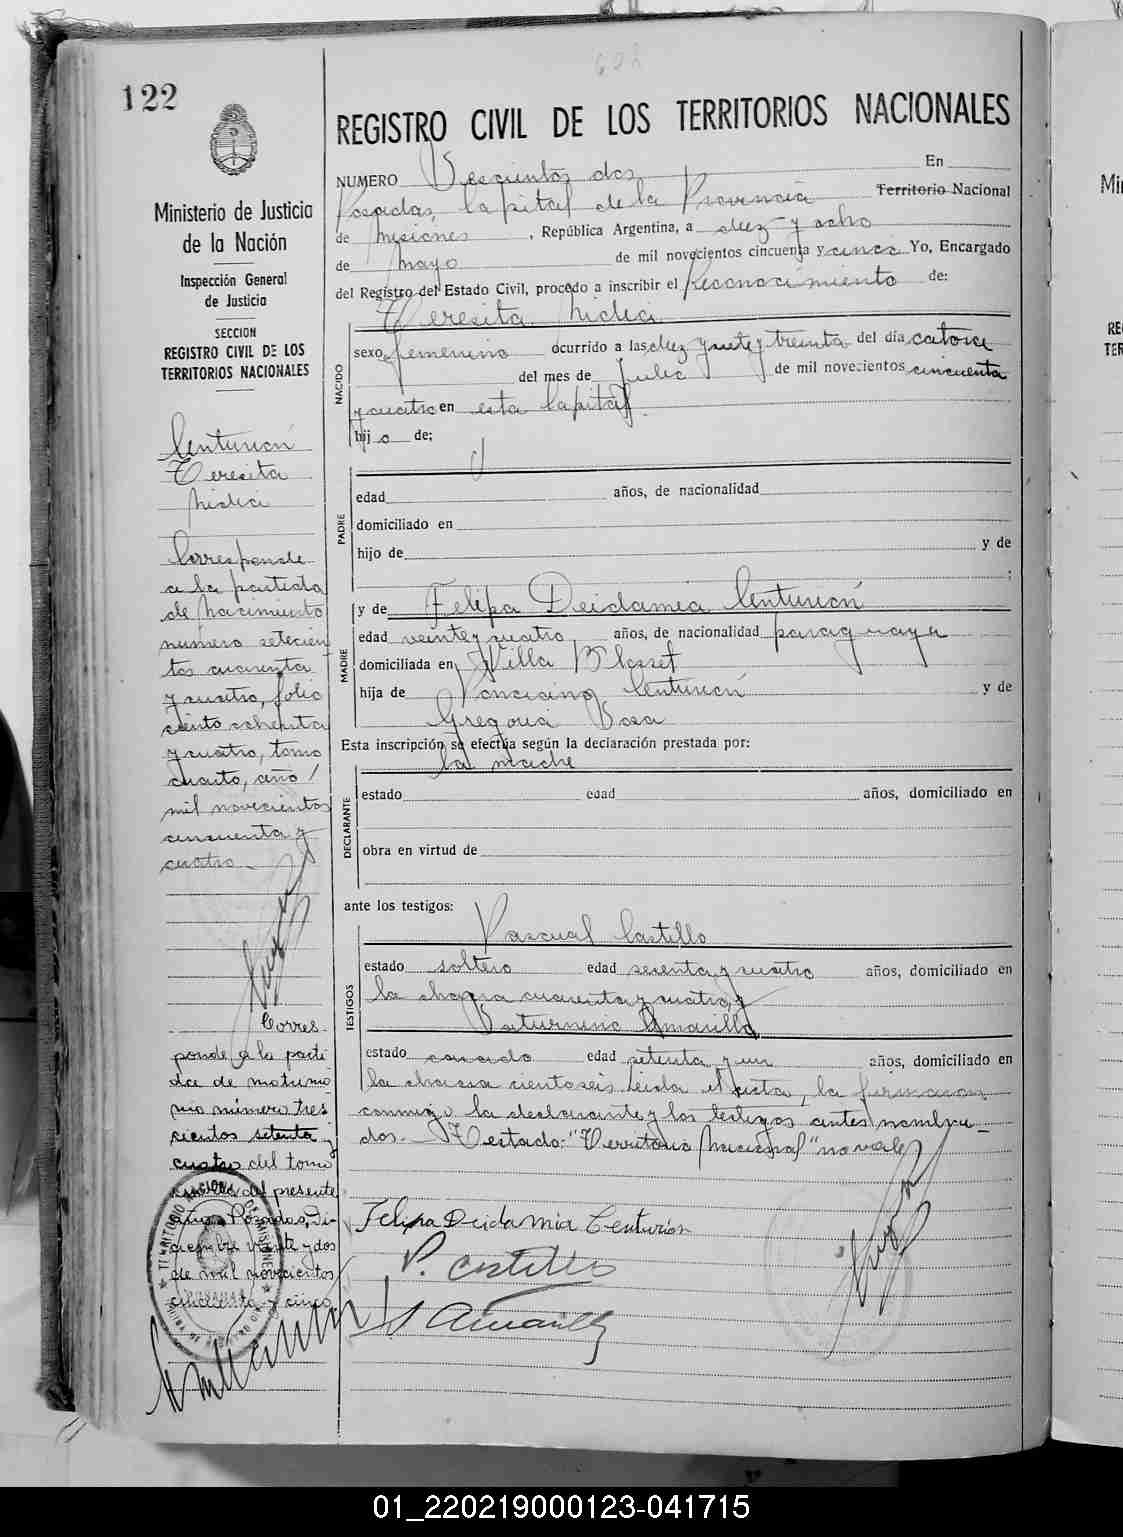 122
REGISTRO CIVIL DE LOS TERRITORIOS NACIONALES
NUMERO Doscientos dos En
Posadas, Capital de la Provincia Territorio Nacional
de Misiones, República Argentina, a diez y ocho
de mayo de mil novecientos cincuenta y cinco Yo, Encargado
del Registro del Estado Civil, procedo a inscribir el Reconocimiento de:
Teresita Nidia
NACIDO
sexo femenino ocurrido a las diez y siete y treinta del día catorce
del mes de Julio de mil novecientos cincuenta
y cuatro en esta Capital
hij a de:
PADRE
edad años, de nacionalidad
domiciliado en
hijo de y de
;
y de Felipa Deidamia Centurión
MADRE
edad veinte y cuatro, años, de nacionalidad paraguaya
domiciliada en Villa Blosset
hija de Ponciano Centurión y de
Gregoria Sosa
Esta inscripción se efectúa según la declaración prestada por:
la madre
DECLARANTE
estado edad años, domiciliado en
obra en virtud de
ante los testigos:
Pascual Castillo
TESTIGOS
estado soltero edad sesenta y cuatro años, domiciliado en
la chacra cuarenta y cuatro y
Saturnino Amarilla
estado casado edad setenta y un años, domiciliado en
la chacra ciento seis Leida el acta, la firmaron
conmigo la declarante y los testigos antes nombra-
dos.- Testado: "Territorio Nacional" no vale
Felipa Deidamia Centurión
P. Castillo
S Amarilla
Ministerio de Justicia
de la Nación
Inspección General
de Justicia
SECCION
REGISTRO CIVIL DE LOS
TERRITORIOS NACIONALES
Centurión
Teresita
Nidia
Corresponde
a la partida
de nacimiento
número setecien
tos cuarenta
y cuatro, folio
ciento ochenta
y cuatro, tomo
cuarto, año
mil novecientos
cincuenta y
cuatro.-
Corres-
ponde a la parti
da de matrimo
nio número tres
cientos setenta y
cuatro del tomo
del presente
año. Posadas, Di-
ciembre veinte y dos
de mil novecientos
cincuenta y cinco
01_220219000123-041715